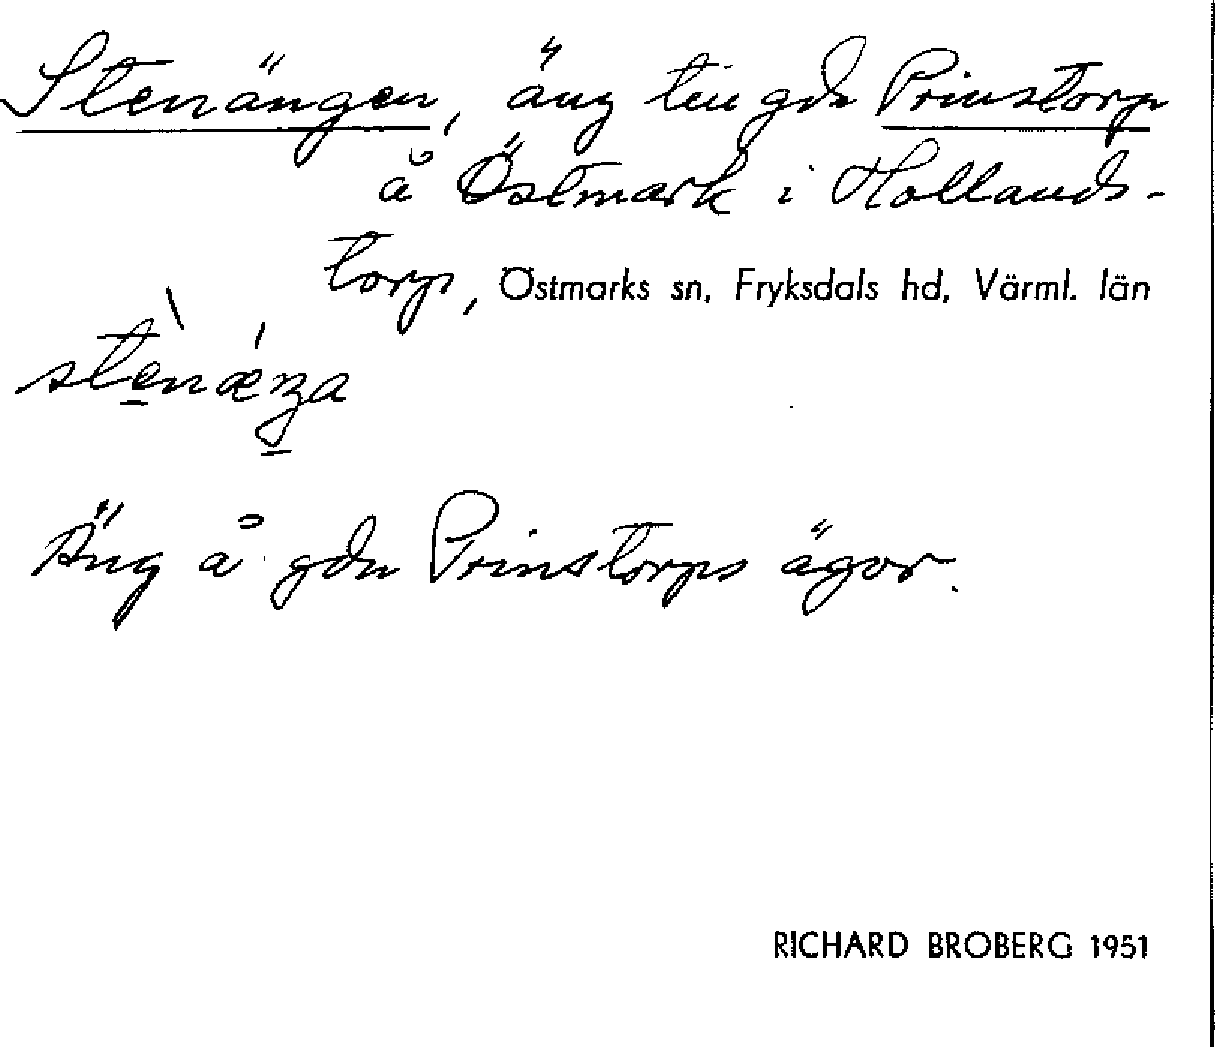 Stenängen, äng till gdn Prinstorp
å Östmark i Hollands-
torp, Östmarks sn, Fryksdals hd, Värml. län
Äng å gdn Prinstorps ägor.
RICHARD BROBERG 1951